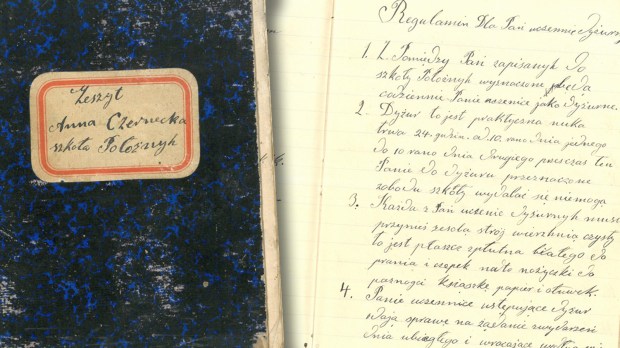 Zeszyt
Anna Czernecka
szkoła Położnyh
Regulamin Dla Pań uczennic dyżurny
1. Z Pomiędzy Pań zapisanyh do
szkoły Położnyh wyznaczone będą
codziennie Panie uczenice jako dyżurne.
2. Dyżur to jest praktyczna nuka
trwa 24. godzin. od 10. rano dnia jednego
do 10 rano dnia drugiego podczas ten
Panie do dyżuru przeznaczone
zobodu szkóły wydalać się niemogą
3. Każda z Pań uczenic dyżurnyh musi
przynuś zesobą strój wierzhnią czysty
to jest płaszcz zpłutna białego do
prania i czepek nato nożyczki do
paznogci książkę papier i ołuwek.
4. Panie uczennice wstępujące dyżur
zdają sprawę na rządanie zwydarzeń
dnia ubiegłego i